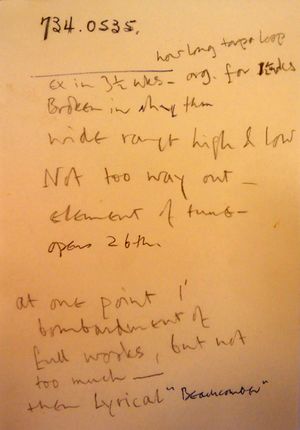 734.0535.
how long tape loop
Ex in 3½ wks - org. for
Broken in rhythm
wide range high & low
Not too way out -
element of tune -
opens 26th.
at one point 1'
bombardment of
full works, but not
too much -
then Lyrical "Beachcomber"